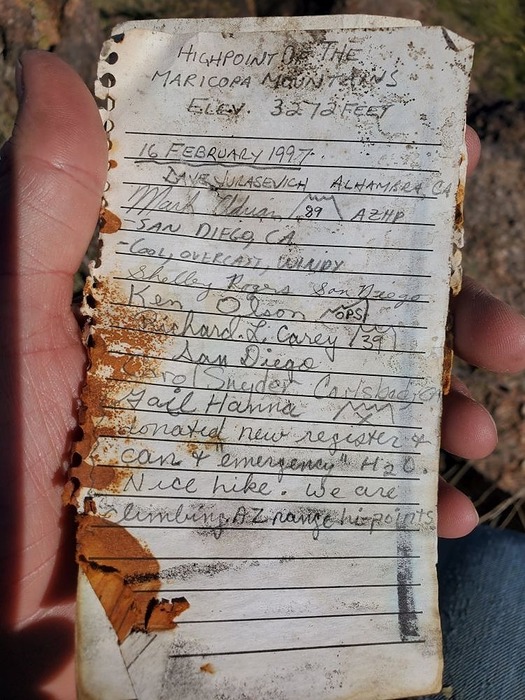 HIGHPOINT OF THE
MARICOPA MOUNTAINS
ELEV. 3272 FEET
16 FEBRUARY 1997.
DAVE JURASEVICH ALHAMBRA, CA
Mark Adrian 89 AZHP
SAN DIEGO, CA
-COOL, OVERCAST, WINDY
Shelley Rogers San Diego
Ken Olson OPS
Richard L. Carey 39
San Diego
Carol Snyder Carlsbad, CA
Gail Hanna
Donated new register &
can & "emergency" H2O.
Nice hike. We are
climbing AZ range hi-points